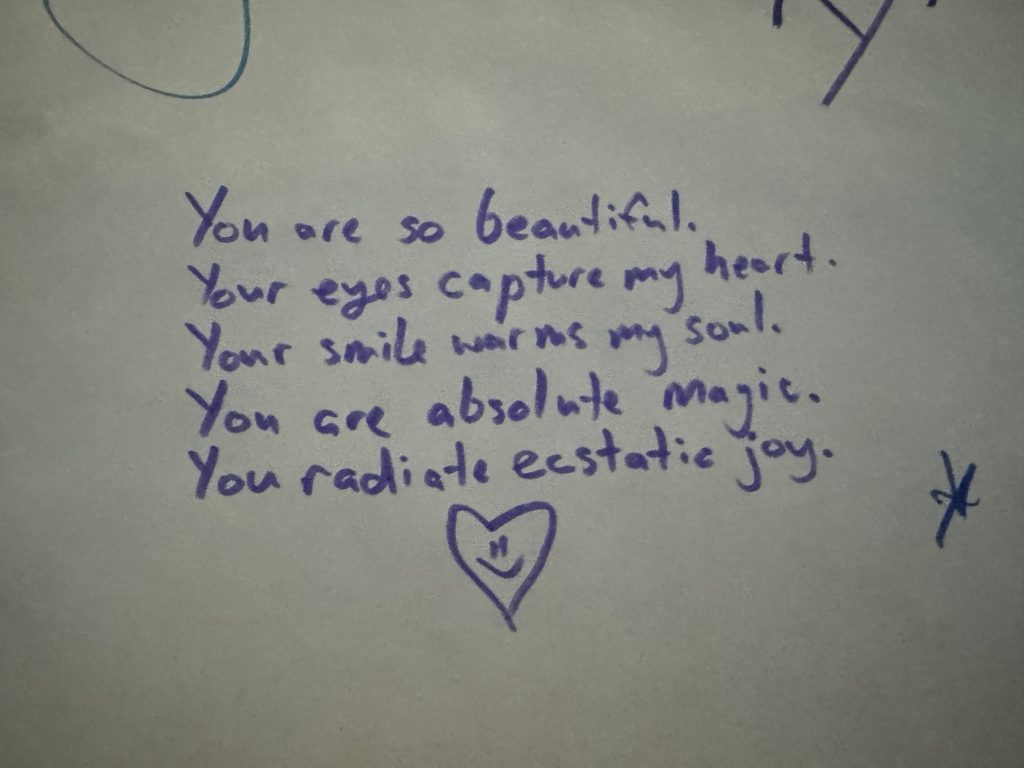 You are so beautiful.
Your eyes capture my heart.
Your smile warms my soul.
You are absolute magic.
You radiate ecstatic joy.